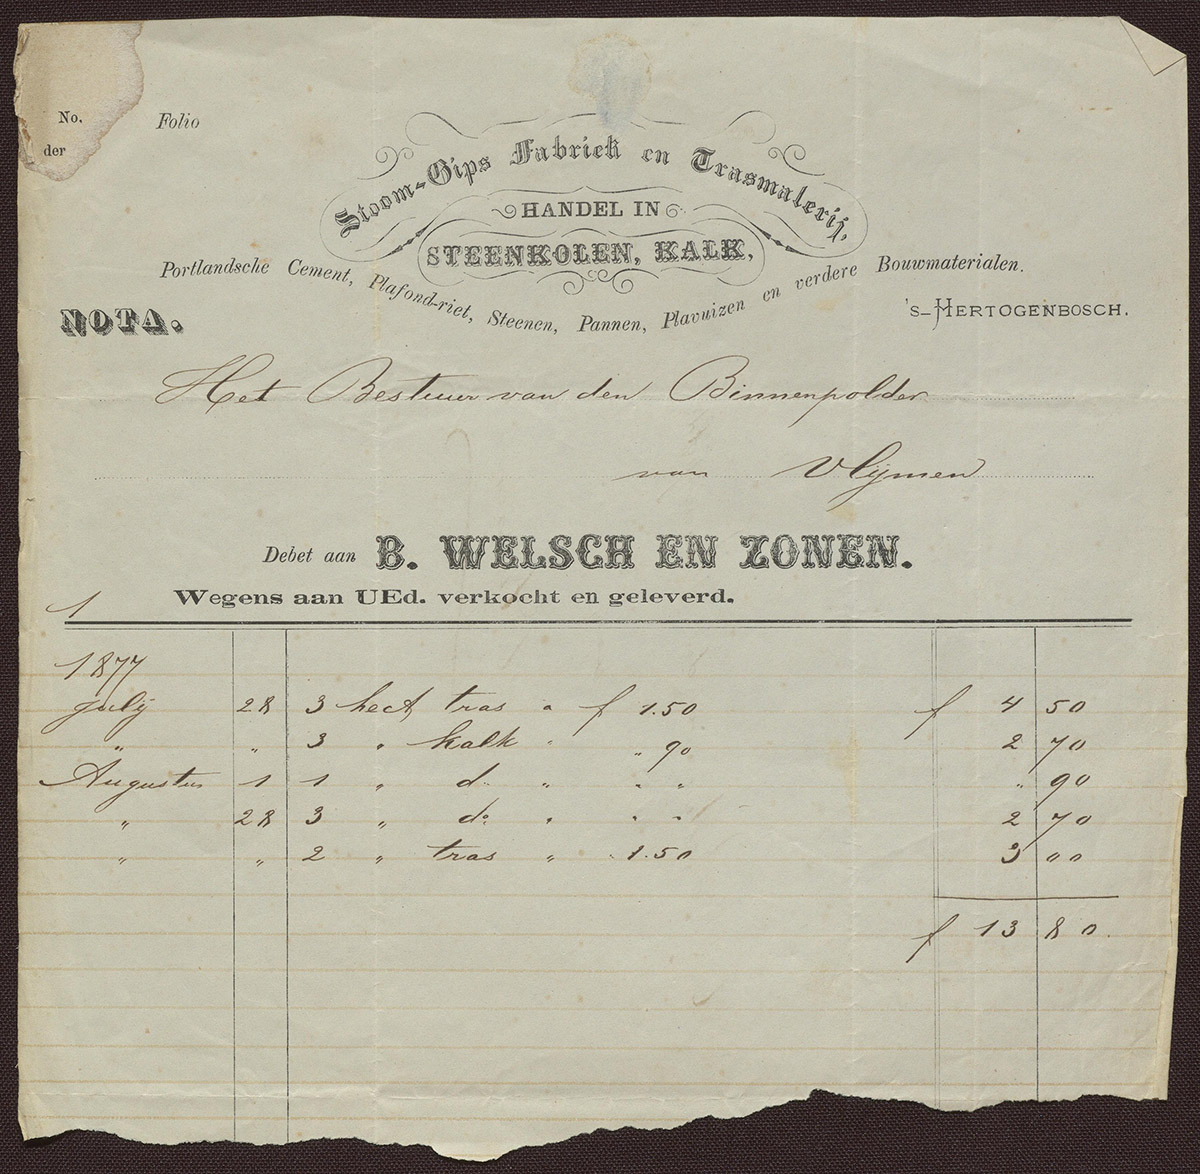 No. Folio
der
Stoom-Gips Fabriek en Trasmalerij,
HANDEL IN
STEENKOLEN, KALK,
Portlandsche Cement, Plafond-riet, Steenen, Pannen, Plavuizen en verdere Bouwmaterialen.
NOTA.
's-HERTOGENBOSCH.
Het Bestuur van den Binnenpolder
van Vlijmen
Debet aan B. WELSCH EN ZONEN.
Wegens aan UEd. verkocht en geleverd.
1
1877
July 28 3 hect tras a f 1.50 f 4 50
" " 3 " kalk " " 90 2 70
Augustus 1 1 " do " " " " 90
" 28 3 " do " " " 2 70
" " 2 " tras " " 1.50 3 00
f 13 80.